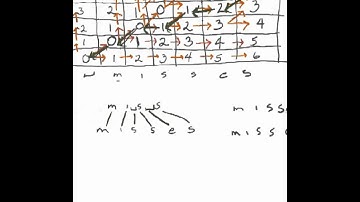 3 2 1 0 1 2 3
2 1 0 1 2 3 4
1 0 1 2 3 4 5
0 1 2 3 4 5 6
␣ m i s s e s
m i ␣s ␣s m i s s
m i s s e s m i s s